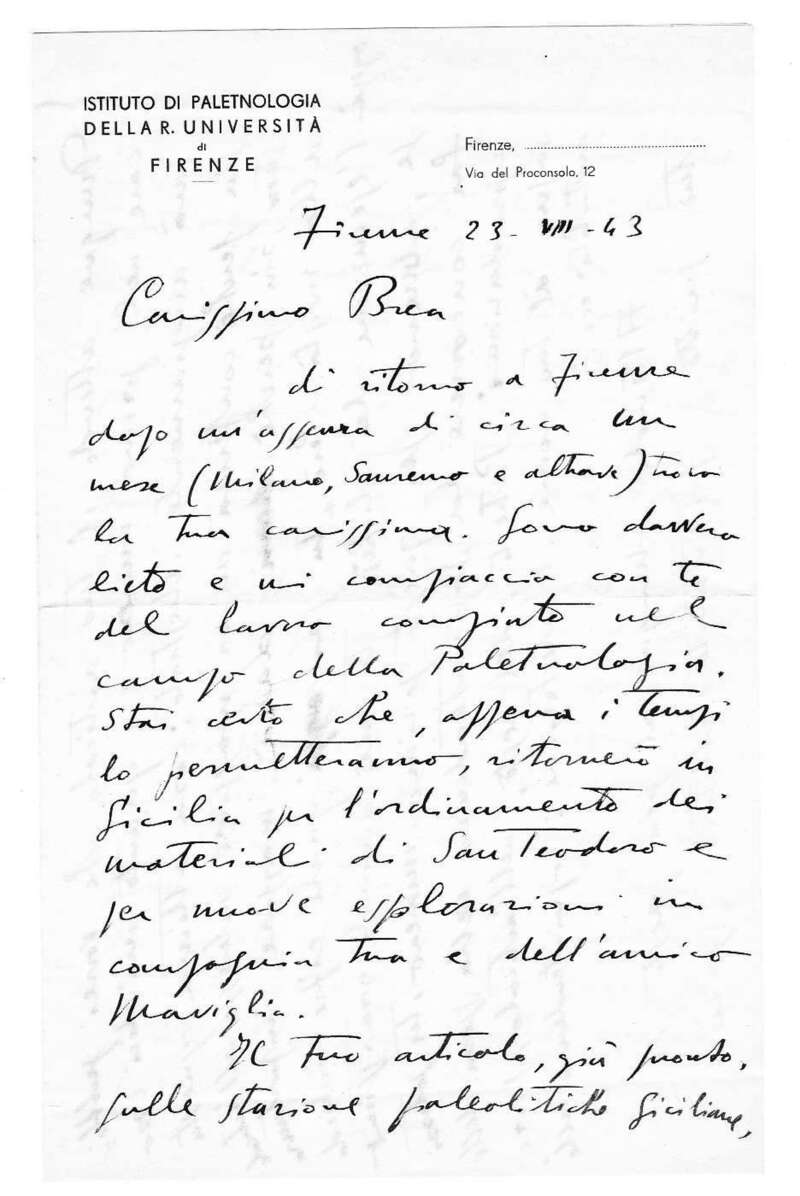 ISTITUTO DI PALETNOLOGIA
DELLA R. UNIVERSITÀ
di
FIRENZE
Firenze, ........................................
Via del Proconsolo, 12
Firenze 23 - VIII - 43
Carissimo Brea
di ritorno a Firenze
dopo un'assenza di circa un
mese (Milano, Sanremo e altrove) trovo
la tua carissima. Sono davvero
lieto e mi compiaccio con te
del lavoro compiuto nel
campo della Paletnologia.
Stai certo che, appena i tempi
lo permetteranno, ritornerò in
Sicilia per l'ordinamento dei
materiali di San Teodoro e
per nuove esplorazioni in
compagnia tua e dell'amico
Maviglia.
Il tuo articolo, già pronto,
sulle stazione paleolitiche siciliane,